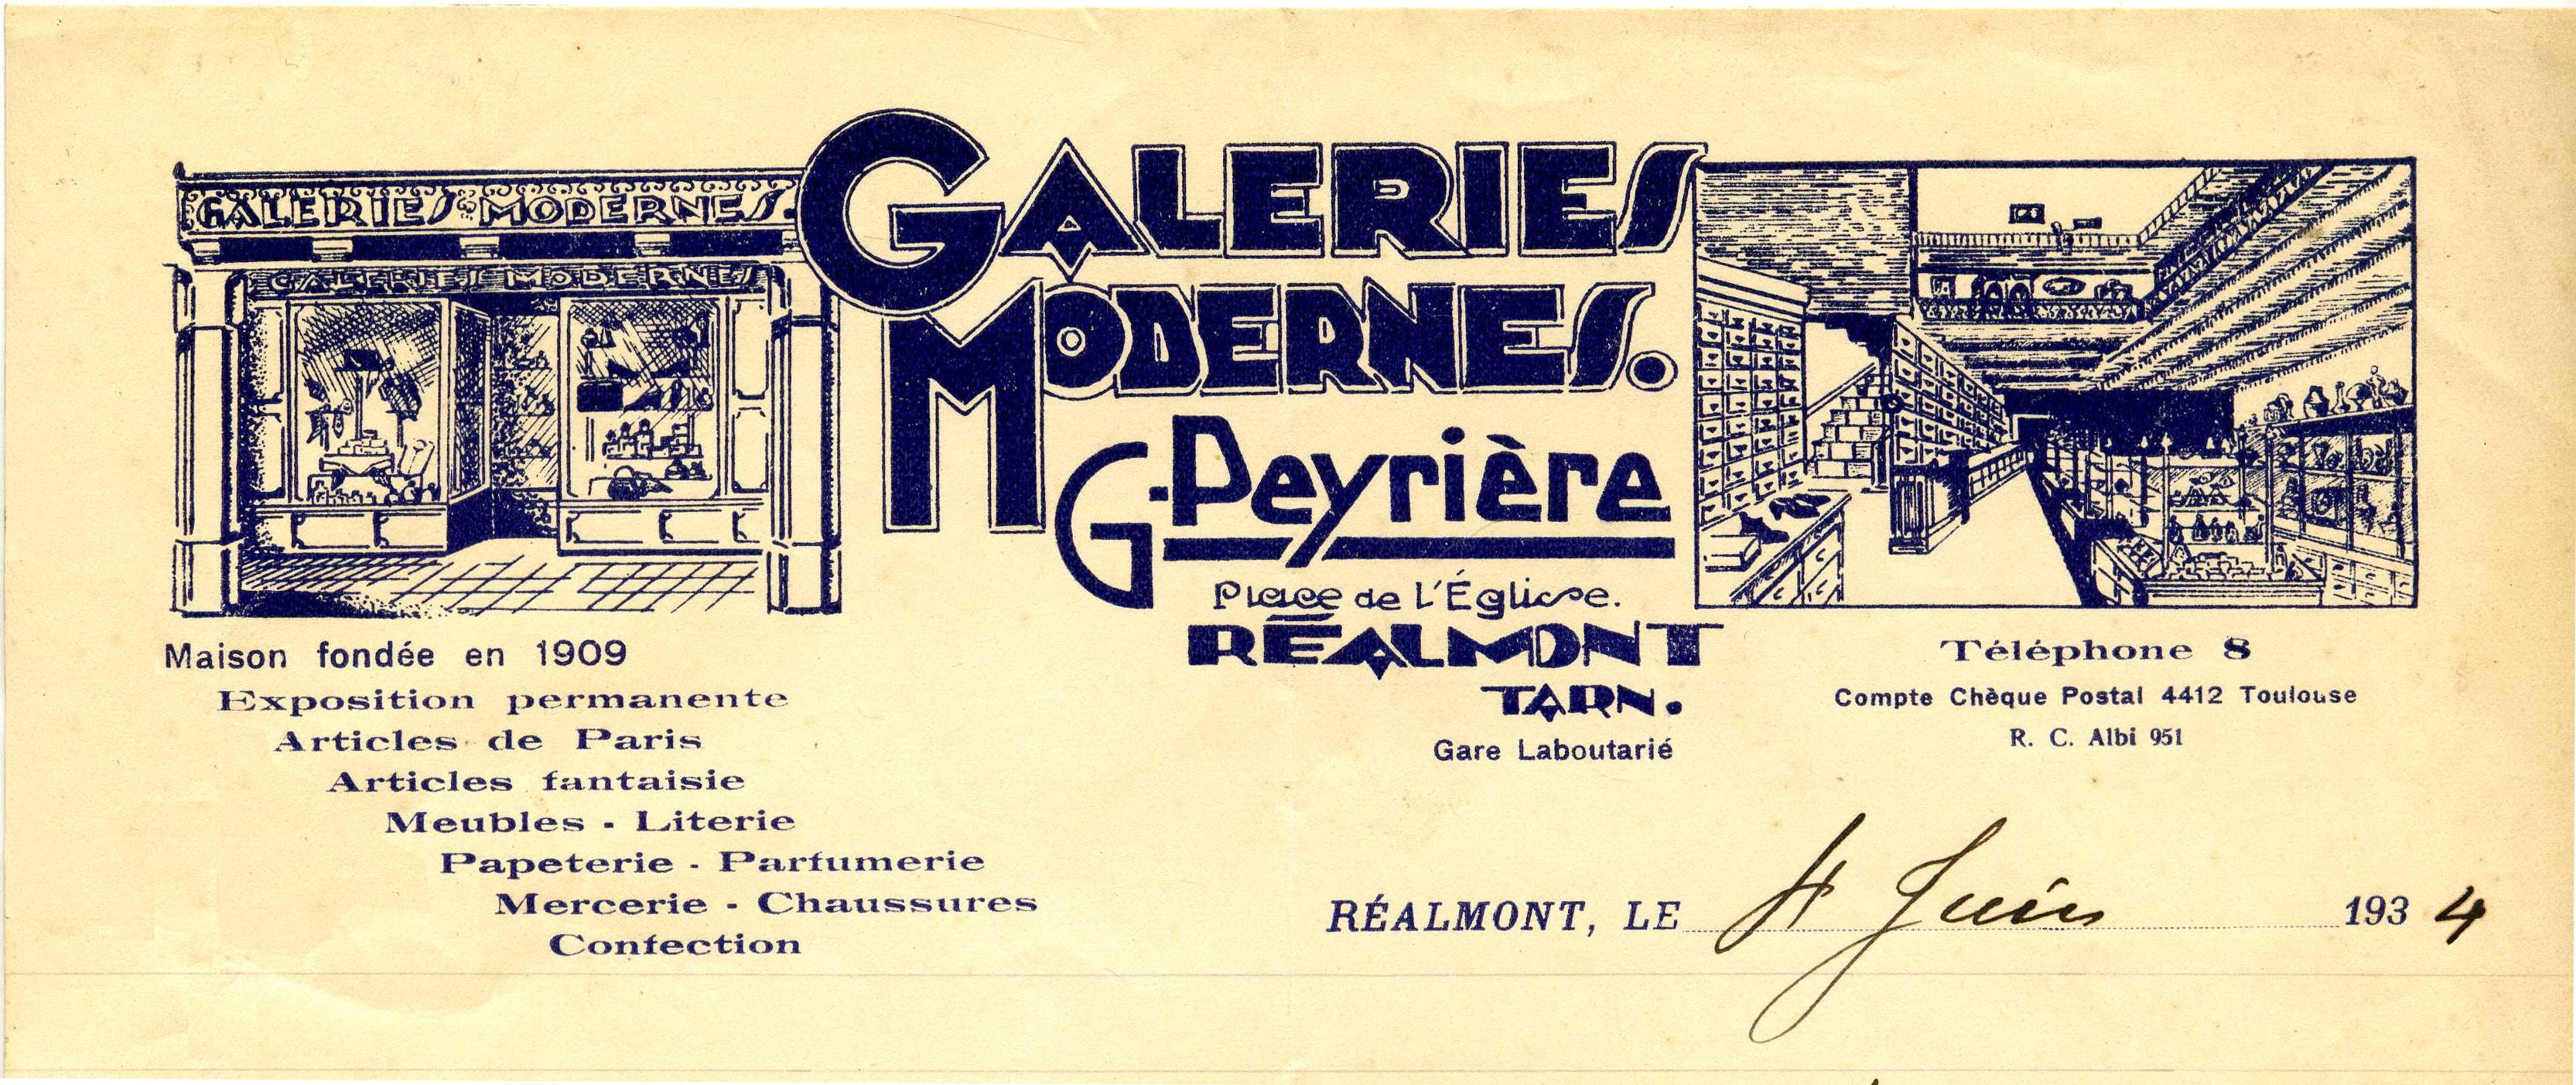 GALERIES MODERNES.
GALERIES MODERNES
GALERIES
MODERNES.
G. Peyrière
Place de l'Église.
RÉALMONT
TARN.
Gare Laboutarié
Maison fondée en 1909
Exposition permanente
Articles de Paris
Articles fantaisie
Meubles - Literie
Papeterie - Parfumerie
Mercerie - Chaussures
Confection
Téléphone 8
Compte Chèque Postal 4412 Toulouse
R. C. Albi 951
RÉALMONT, LE 4 Juin 1934